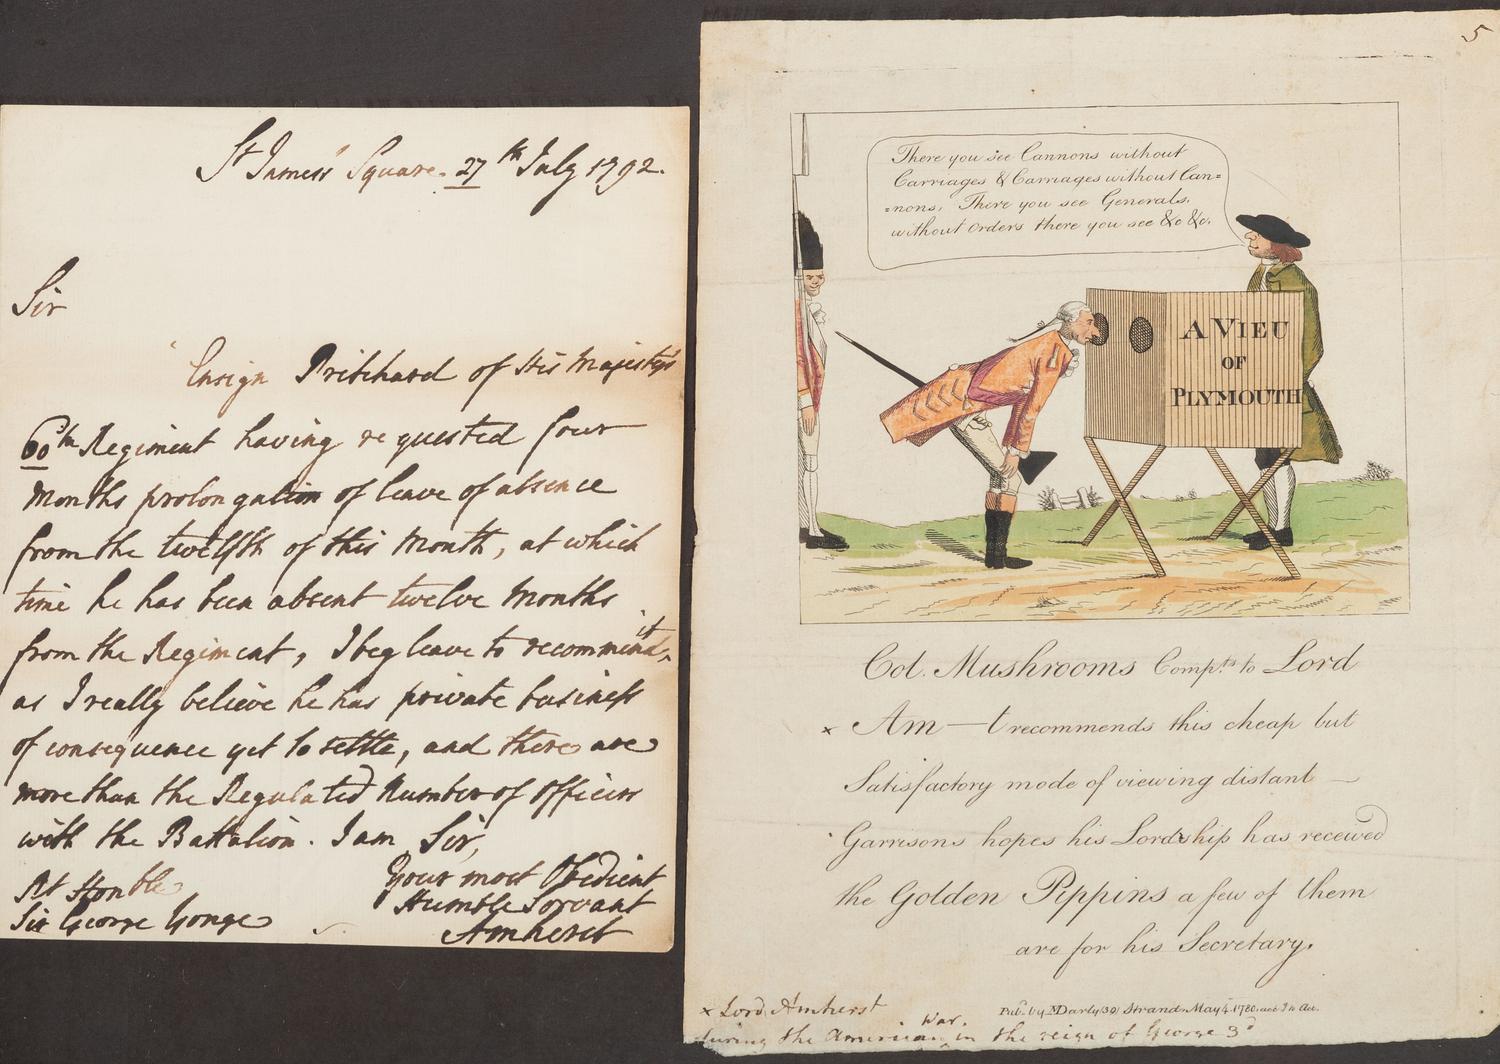 St James's Square. 27th July 1792.
Sir
Ensign Pritchard of His Majesty's
60th Regiment having requested four
Months prolongation of leave of absence
from the twelfth of this Month, at which
time he has been absent twelve Months
from the Regiment, I beg leave to recommend it,
as I really believe he has private business
of consequence yet to settle, and there are
more than the Regulated Number of Officers
with the Battalion. I am Sir,
Your most Obedient
Humble Servant
Amherst
Rt Honble
Sir George Yonge
5
There you see Cannons without
Carriages & Carriages without Can=
=nons, There you see Generals,
without Orders there you see &c &c.
A VIEU
OF
PLYMOUTH
Col. Mushrooms Compts. to Lord
x Am—t recommends this cheap but
Satisfactory mode of viewing distant —
Garrisons hopes his Lordship has received
the Golden Pippins a few of them
are for his Secretary.
Pub. by MDarly (39) Strand May 4. 1780. acc. to Act.
x Lord Amherst
during the American War. in the reign of George 3d